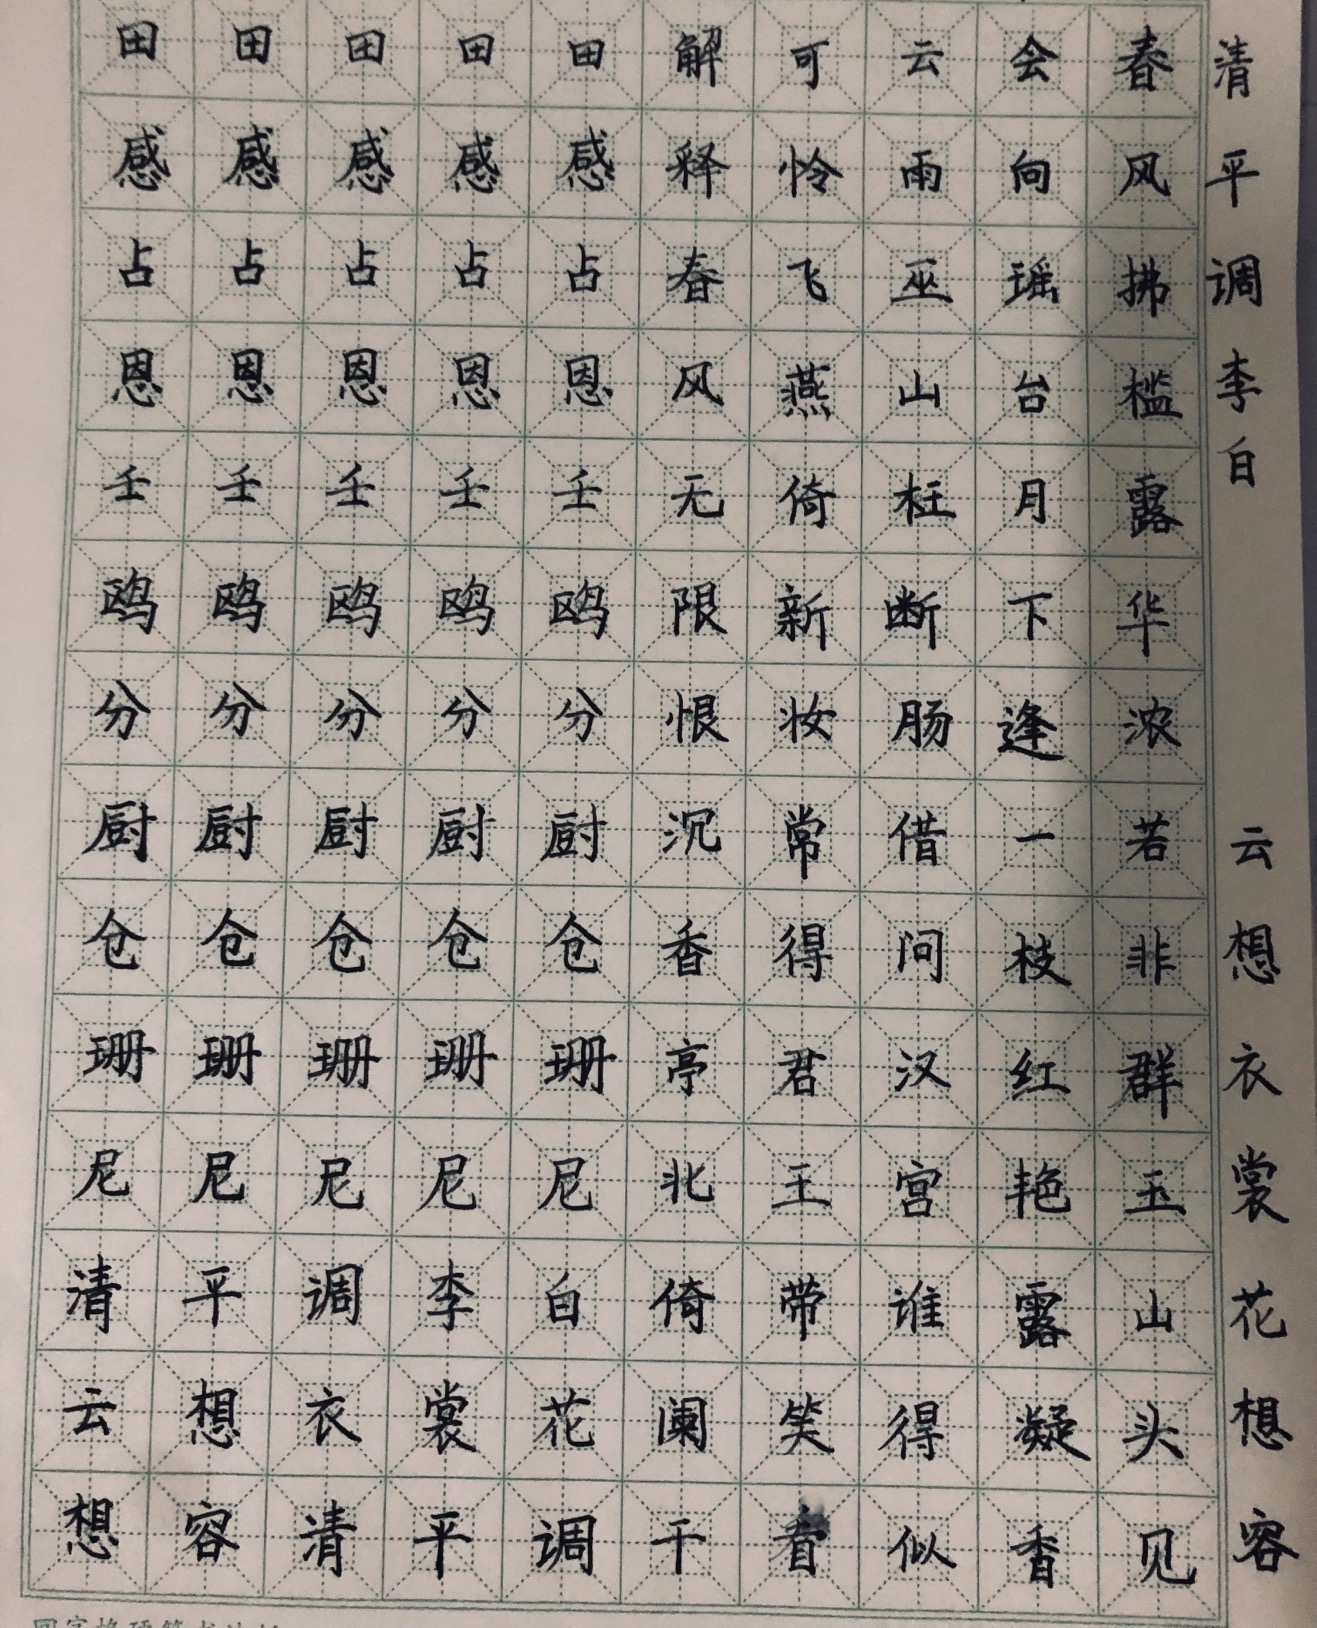 清平调李白 云想衣裳花想容
春风拂槛露华浓若非群玉山头见
会向瑶台月下逢一枝红艳露凝香
云雨巫山枉断肠借问汉宫谁得似
可怜飞燕倚新妆常得君王带笑看
解释春风无限恨沉香亭北倚阑干
田感占恩壬鸥分厨仓珊尼白花调
田感占恩壬鸥分厨仓珊尼李裳平
田感占恩壬鸥分厨仓珊尼调衣清
田感占恩壬鸥分厨仓珊尼平想容
田感占恩壬鸥分厨仓珊尼清云想